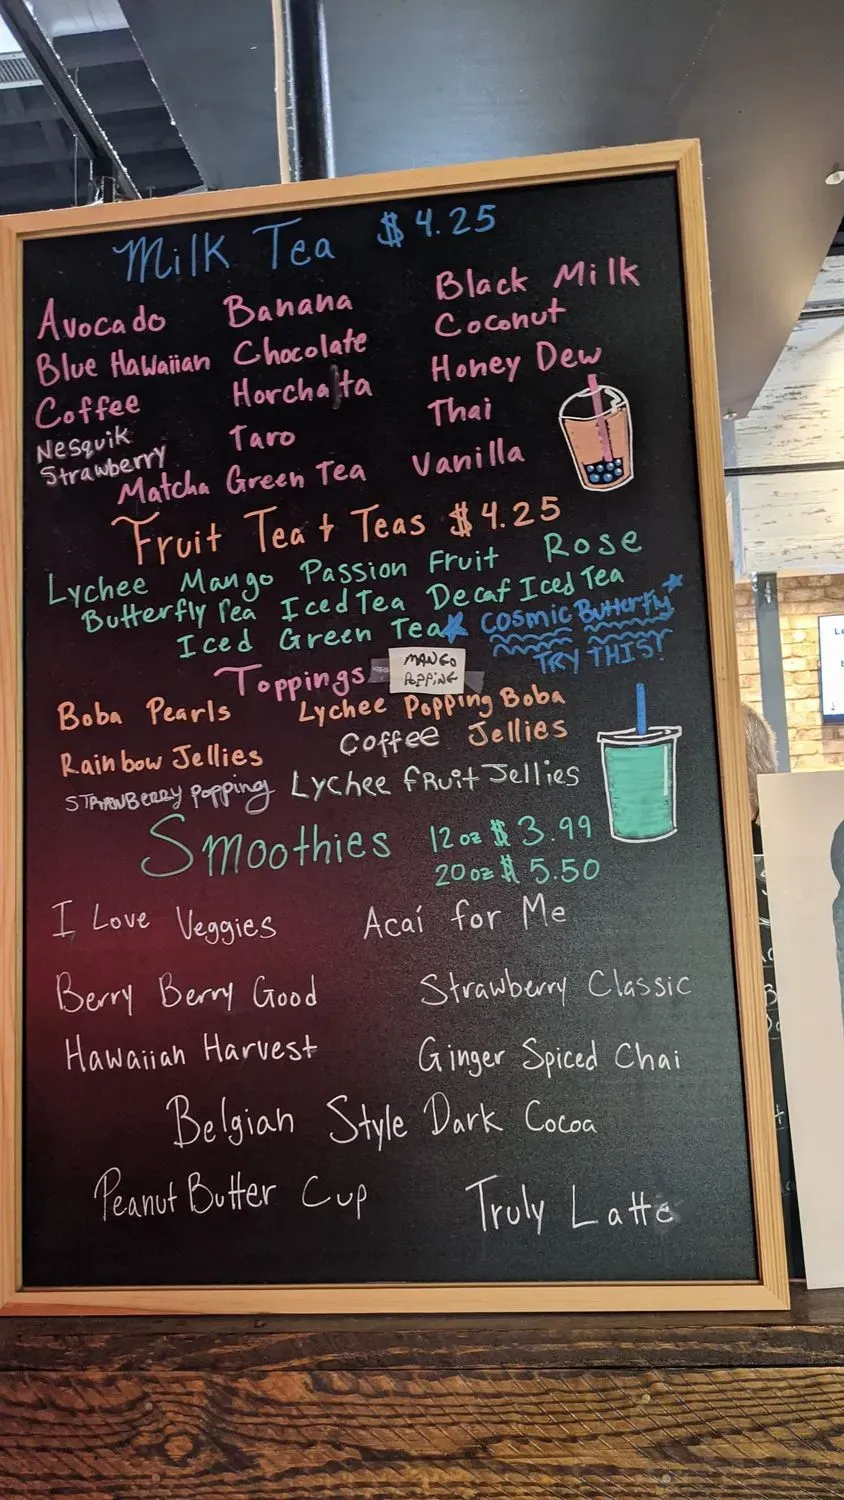 Milk Tea $4.25
Avocado Banana Black Milk
Blue Hawaiian Chocolate Coconut
Coffee Horchata Honey Dew
Nesquik Strawberry Taro Thai
Matcha Green Tea Vanilla
Fruit Tea + Teas $4.25
Lychee Mango Passion Fruit Rose
Butterfly Tea Iced Tea Decaf Iced Tea
Iced Green Tea Cosmic Butterfly
TRY THIS!
Toppings MANGO POPPING
Boba Pearls Lychee Popping Boba
Rainbow Jellies Coffee Jellies
STRAWBERRY POPPING Lychee Fruit Jellies
Smoothies 12 oz $3.99
20 oz $5.50
I Love Veggies Acaí for Me
Berry Berry Good Strawberry Classic
Hawaiian Harvest Ginger Spiced Chai
Belgian Style Dark Cocoa
Peanut Butter Cup Truly Latte